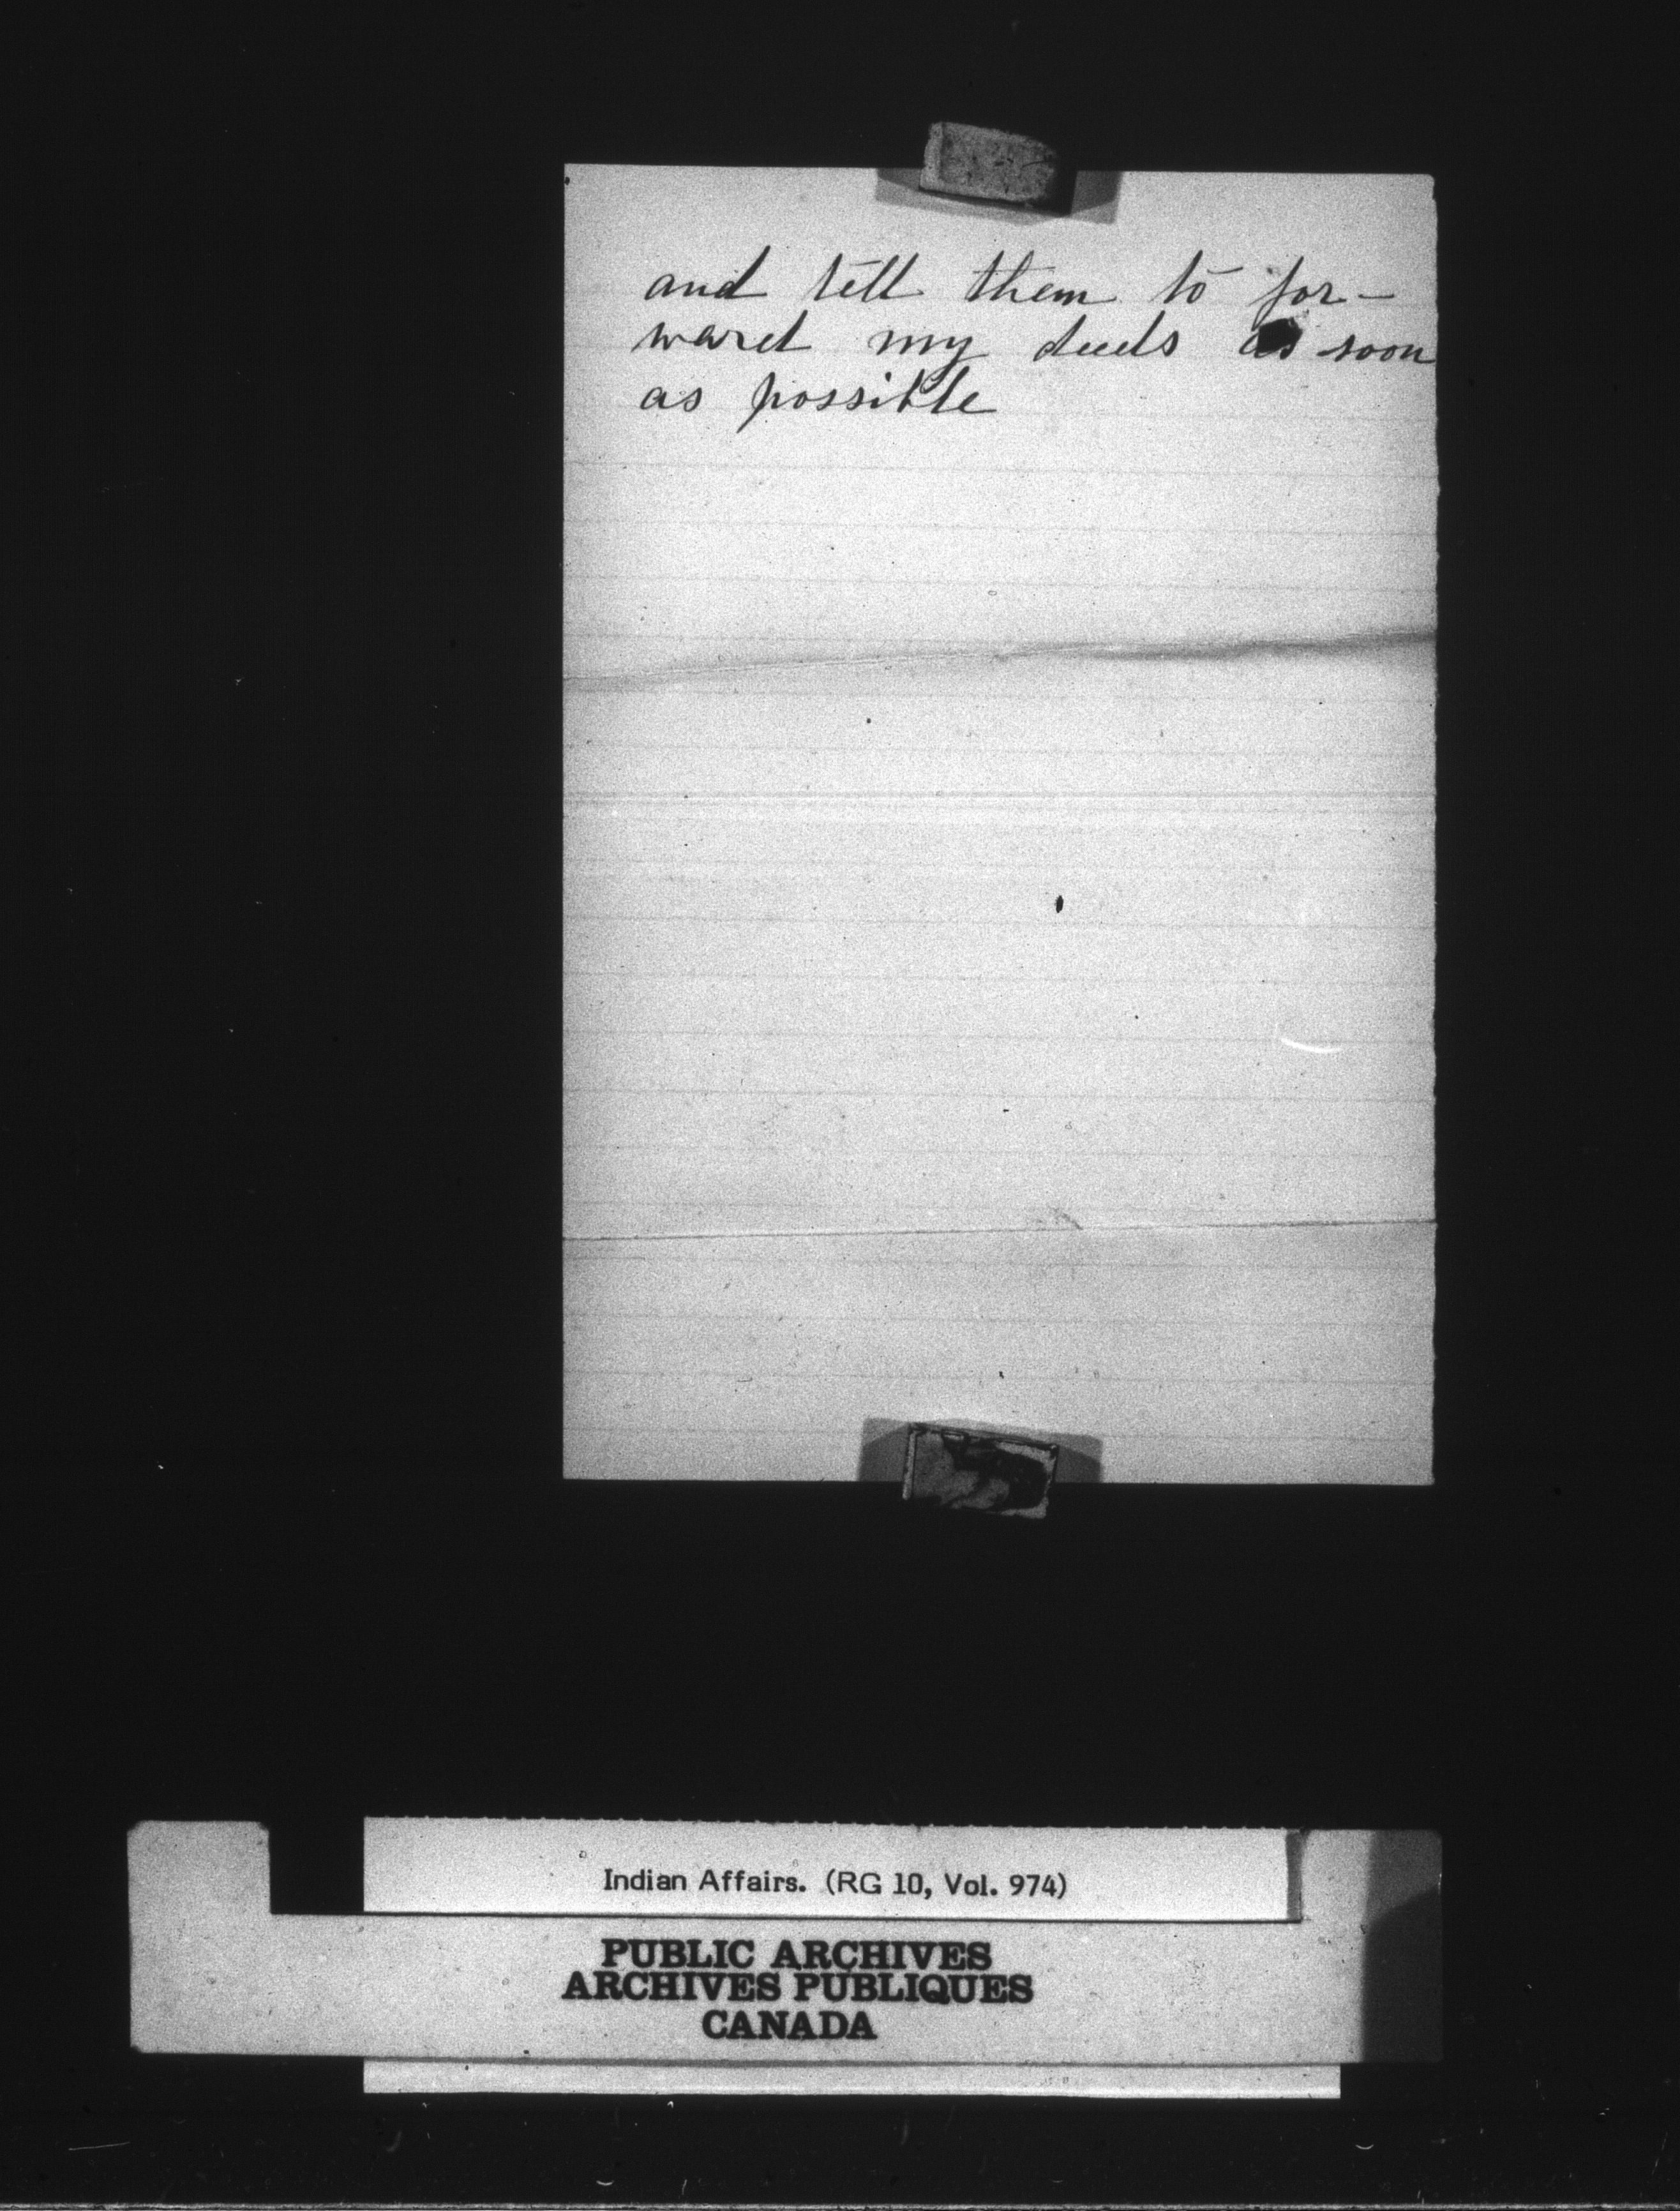 and tell them to for-
ward my deeds as soon
as possible
Indian Affairs. (RG 10, Vol. 974)
PUBLIC ARCHIVES
ARCHIVES PUBLIQUES
CANADA